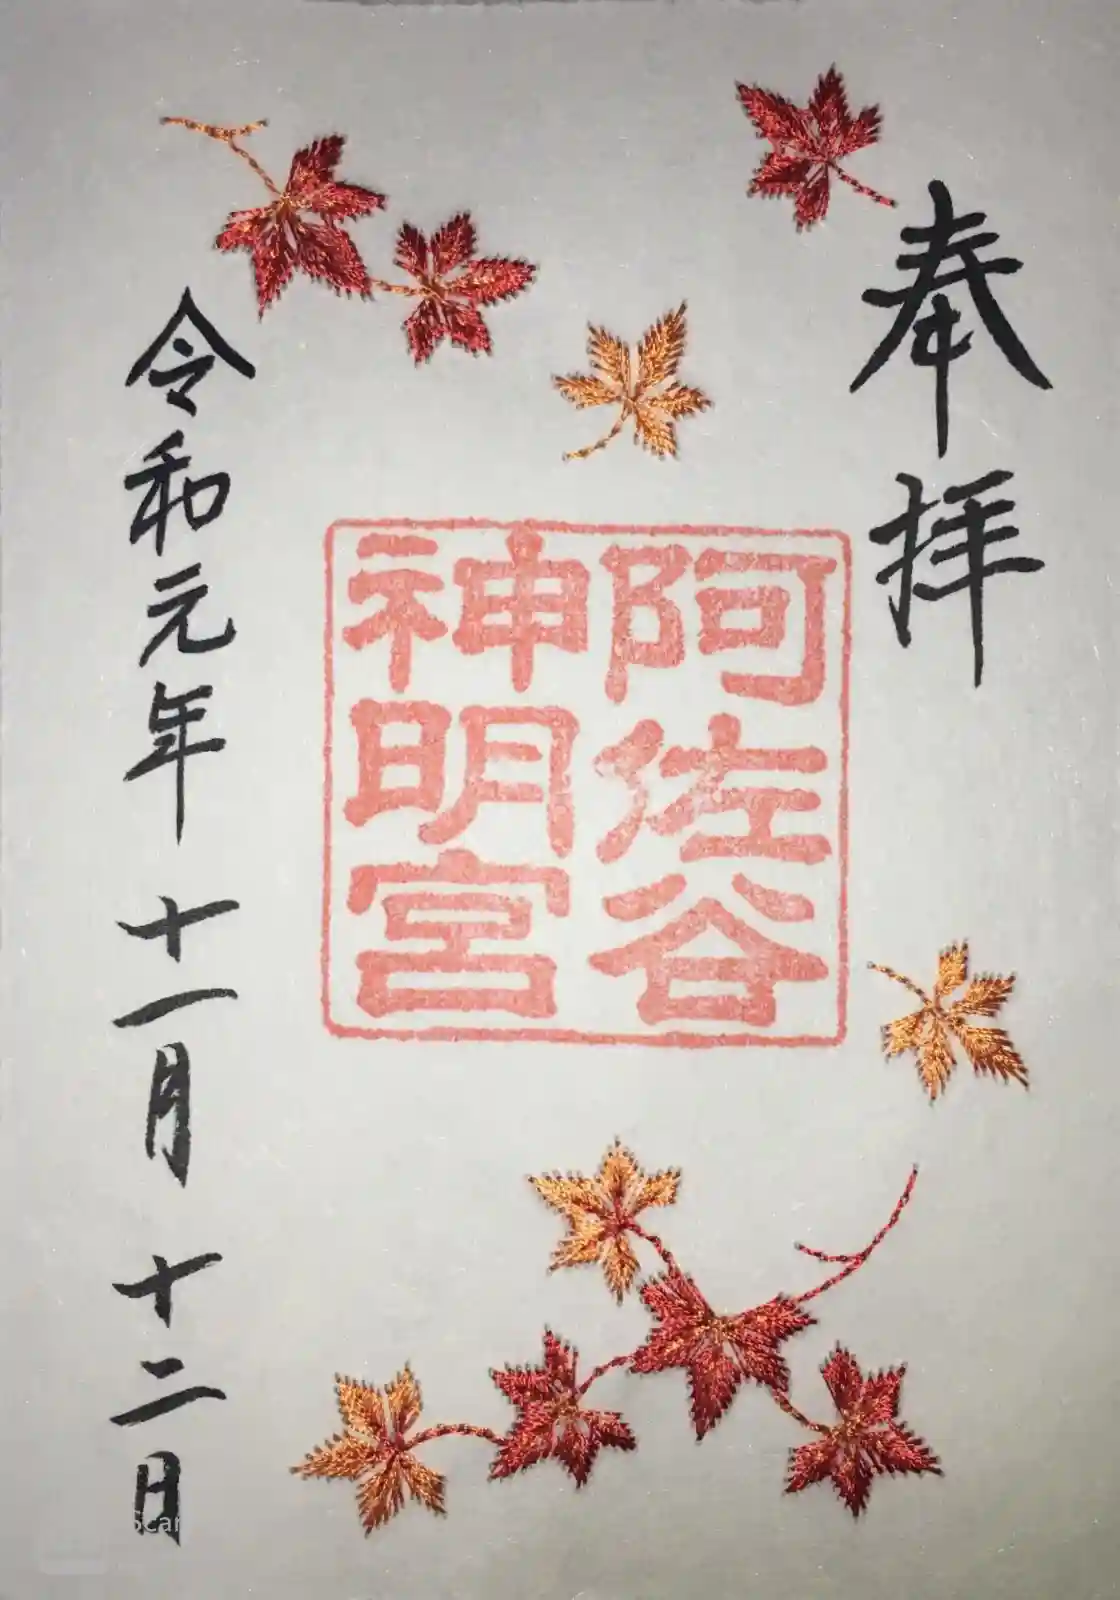 奉拝
阿佐谷
神明宮
令和元年十一月十二日
Scan